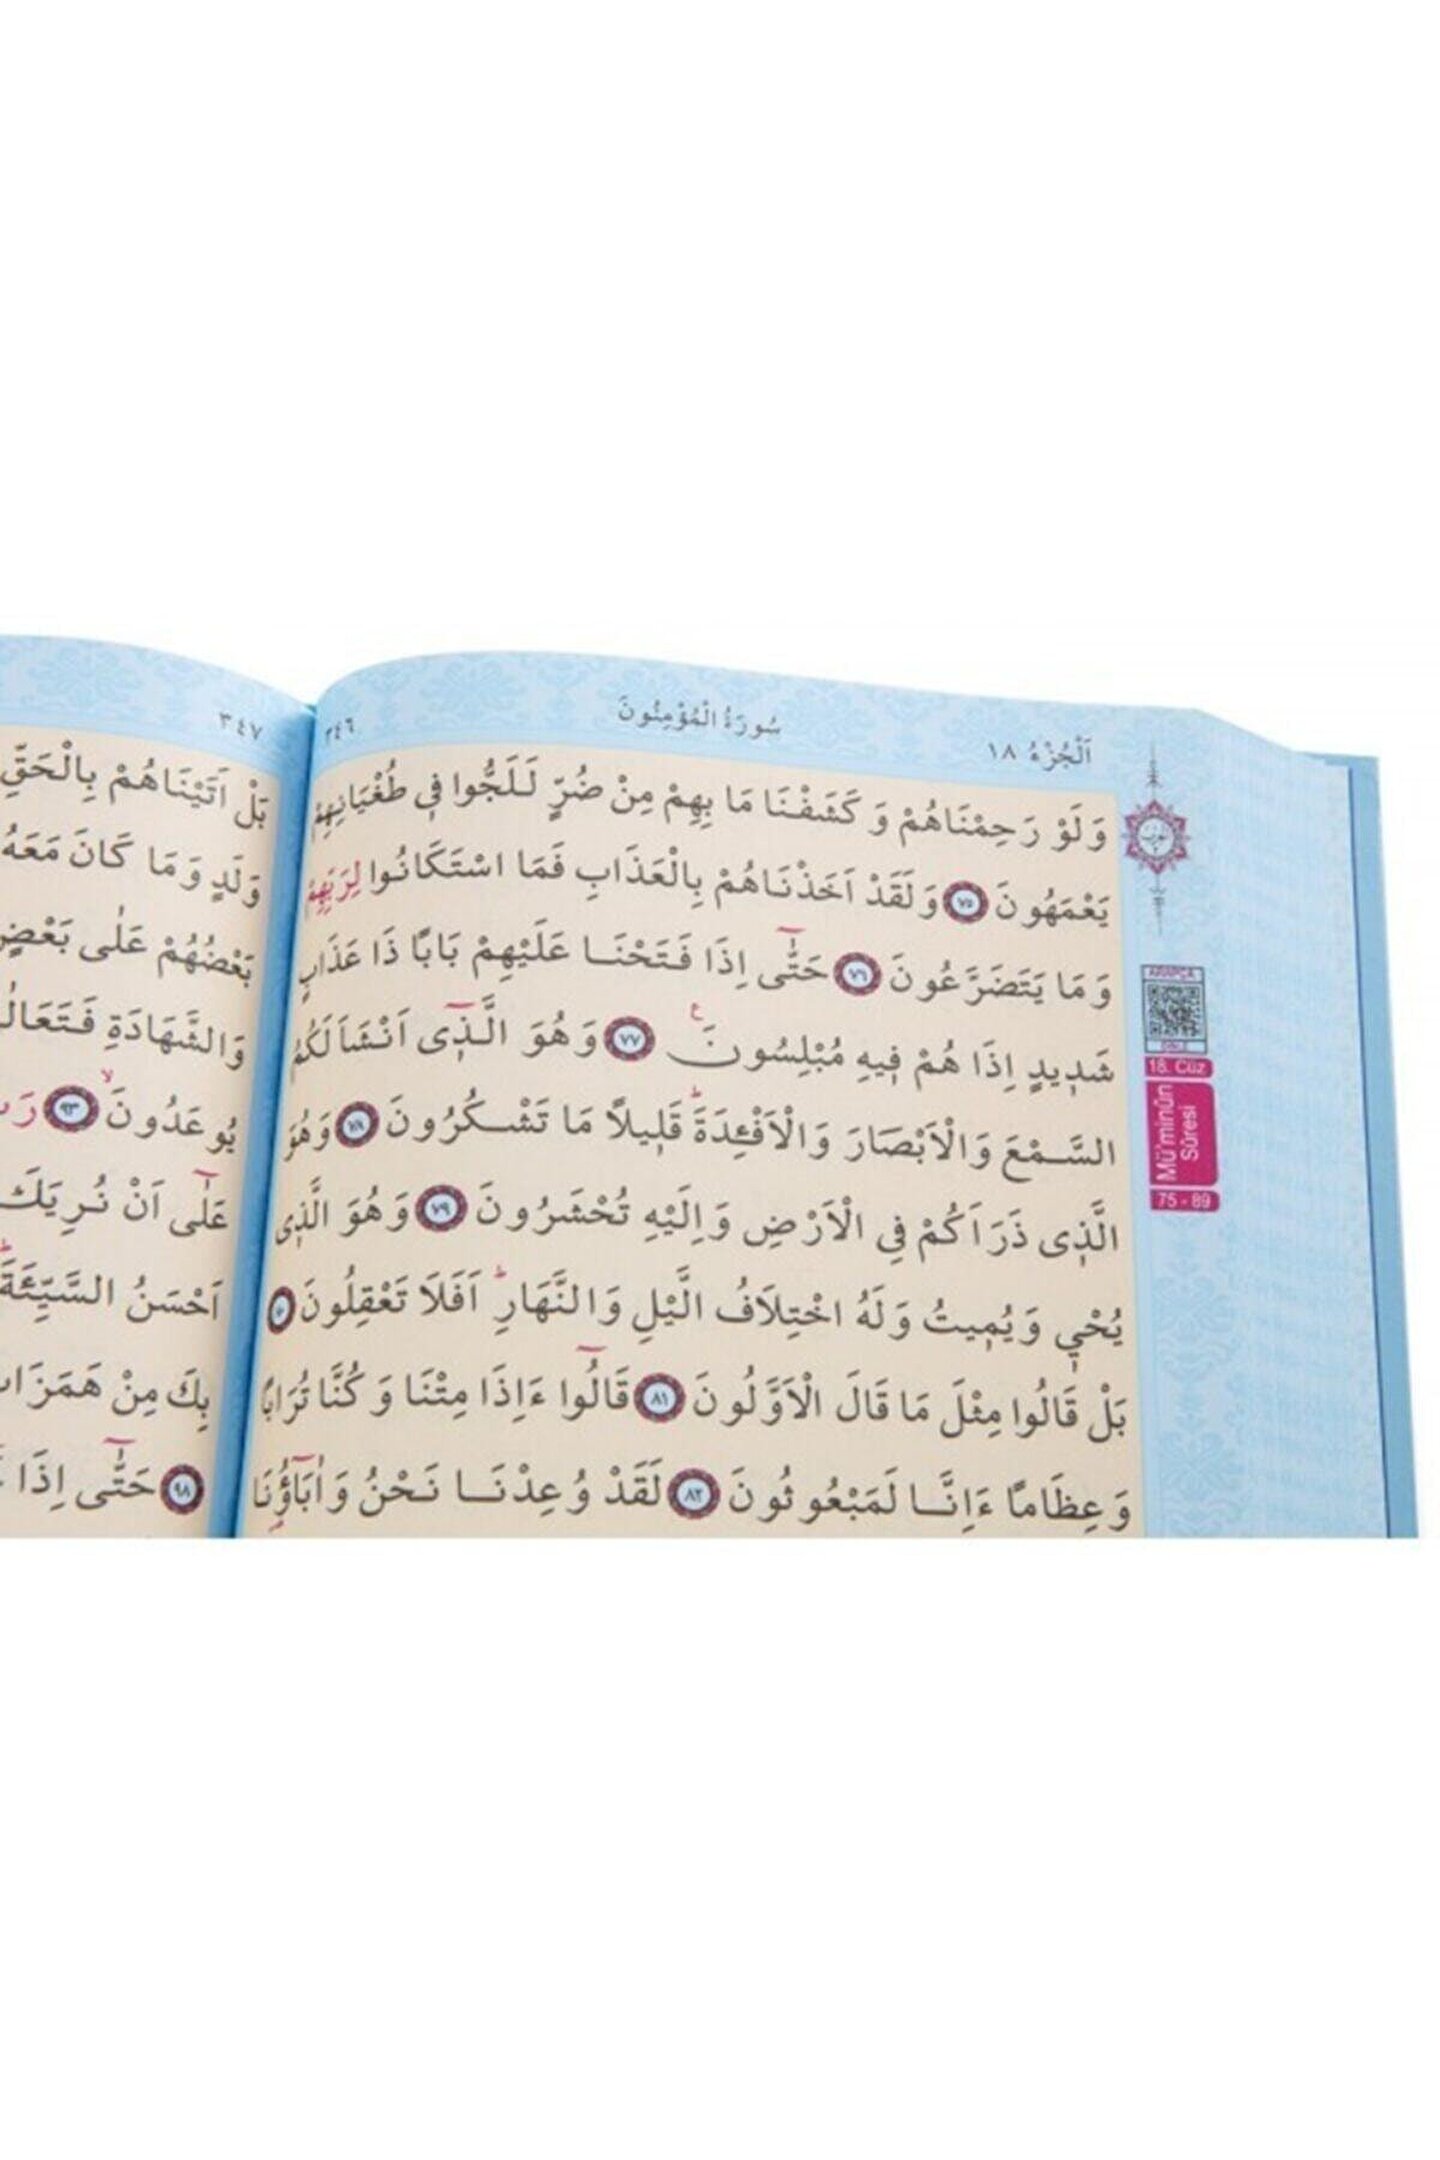 اَلْجُزْءُ ١٨
سُورَةُ الْمُؤْمِنُونَ
٣٤٦
وَلَوْ رَحِمْنَاهُمْ وَكَشَفْنَا مَا بِهِمْ مِنْ ضُرٍّ لَلَجُّوا فٖي طُغْيَانِهِمْ
يَعْمَهُونَ ٧٥ وَلَقَدْ اَخَذْنَاهُمْ بِالْعَذَابِ فَمَا اسْتَكَانُوا لِرَبِّهِمْ
وَمَا يَتَضَرَّعُونَ ٧٦ حَتّٰٓى اِذَا فَتَحْنَا عَلَيْهِمْ بَابًا ذَا عَذَابٍ
شَدٖيدٍ اِذَا هُمْ فٖيهِ مُبْلِسُونَ ع ٧٧ وَهُوَ الَّذٖٓى اَنْشَاَ لَكُمُ
السَّمْعَ وَالْاَبْصَارَ وَالْاَفْـِٔدَةَؕ قَلٖيلًا مَا تَشْكُرُونَ ٧٨ وَهُوَ
الَّذٖى ذَرَاَكُمْ فِي الْاَرْضِ وَاِلَيْهِ تُحْشَرُونَ ٧٩ وَهُوَ الَّذٖى
يُحْيٖ وَيُمٖيتُ وَلَهُ اخْتِلَافُ الَّيْلِ وَالنَّهَارِؕ اَفَلَا تَعْقِلُونَ
بَلْ قَالُوا مِثْلَ مَا قَالَ الْاَوَّلُونَ ٨١ قَالُٓوا ءَاِذَا مِتْنَا وَكُنَّا تُرَابًا
وَعِظَامًا ءَاِنَّا لَمَبْعُوثُونَ ٨٢ لَقَدْ وُعِدْنَا نَحْنُ وَاٰبَٓاؤُ۬نَا
ARAPÇA
18. Cüz
Mü'minûn
Sûresi
75 - 89
٣٤٧
بَلْ اَتَيْنَاهُمْ بِالْحَقِّ
وَلَدٍ وَمَا كَانَ مَعَهُ
بَعْضُهُمْ عَلٰى بَعْضٍ
وَالشَّهَادَةِ فَتَعَالٰ
يُوعَدُونَۙ ٩٣
عَلٰٓى اَنْ نُرِيَكَ
اَحْسَنُ السَّيِّئَةَؕ
بِكَ مِنْ هَمَزَاتِ
٩٨ حَتّٰٓى اِذَا